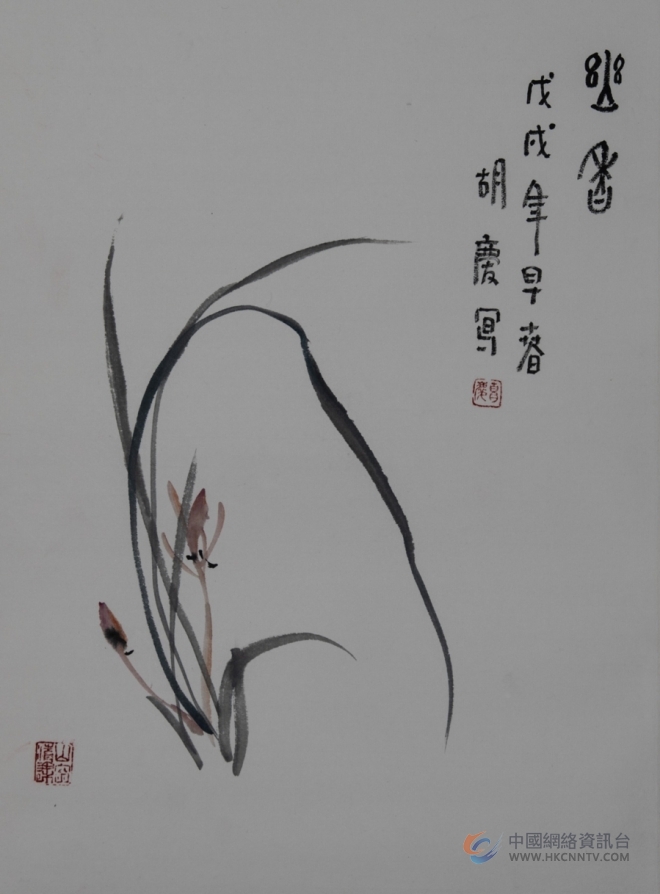 幽香
戊戌年早春
胡慶寫
中國網絡資訊台
WWW.HKCNNTV.COM